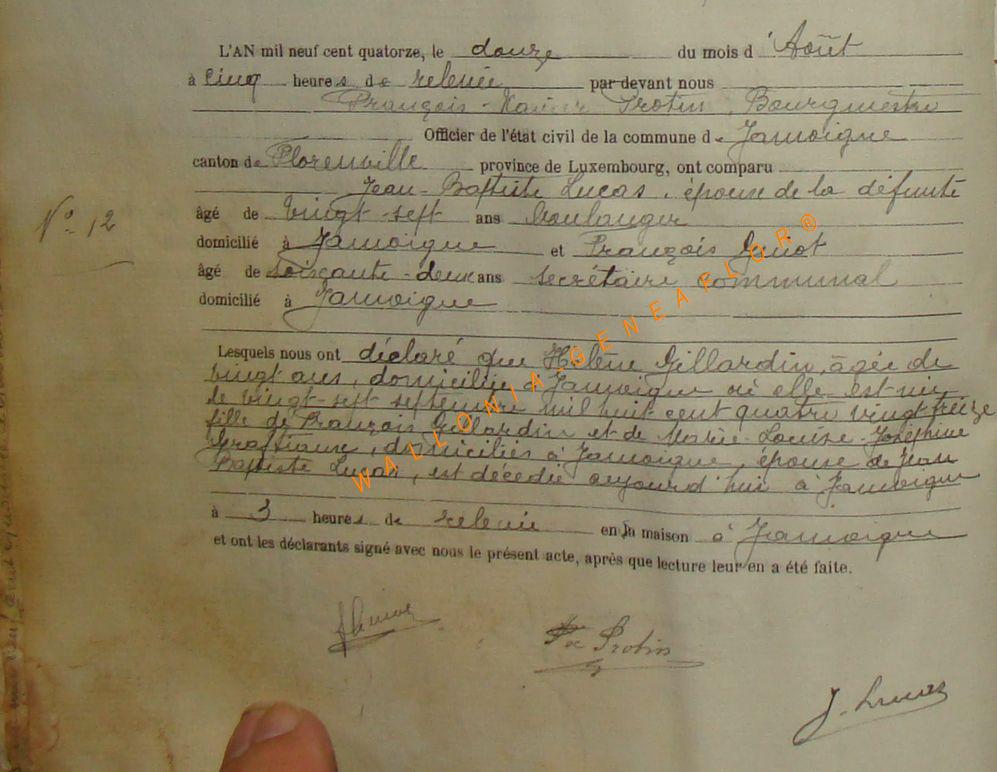 L'AN mil neuf cent quatorze, le douze du mois d'Août
à cinq heures de relevée par devant nous
François-Xavier Protin, Bourgmestre
Officier de l'état civil de la commune de Jamoigne
canton de Florenville province de Luxembourg, ont comparu
Jean-Baptiste Lucas, époux de la défunte
âgé de vingt-sept ans boulanger
domicilié à Jamoigne et François
âgé de soixante-deux ans secrétaire communal
domicilié à Jamoigne
N° 12
Lesquels nous ont déclaré que Hélène Gillardin, âgée de
vingt ans, domiciliée à Jamoigne où elle est née
le vingt-sept septembre mil huit cent quatre vingt treize
fille de François Gillardin et de Marie-Louise-Joséphine
domiciliés à Jamoigne, épouse de Jean
Baptiste Lucas, est décédée aujourd'hui à Jamoigne
à 3 heures de relevée en la maison à Jamoigne
et ont les déclarants signé avec nous le présent acte, après que lecture leur en a été faite.
Protin
J. Lucas
WALLONIA-GENEAFLOR®